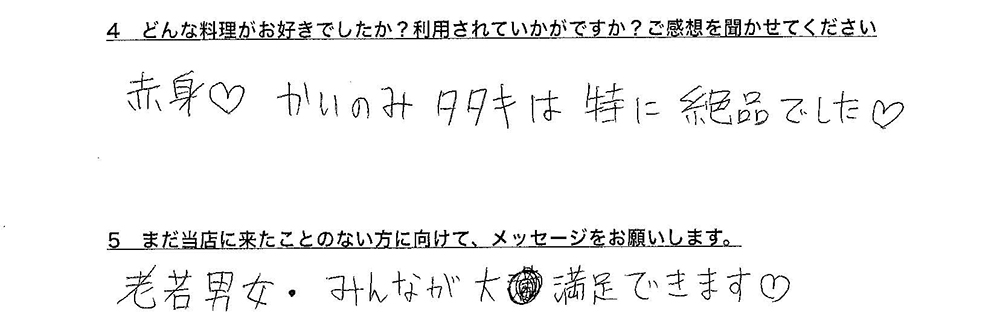 4 どんな料理がお好きでしたか？利用されていかがですか？ご感想を聞かせてください
赤身♡ かいのみ タタキは 特に 絶品でした♡
5 まだ当店に来たことのない方に向けて、メッセージをお願いします。
老若男女・みんなが大満足できます♡